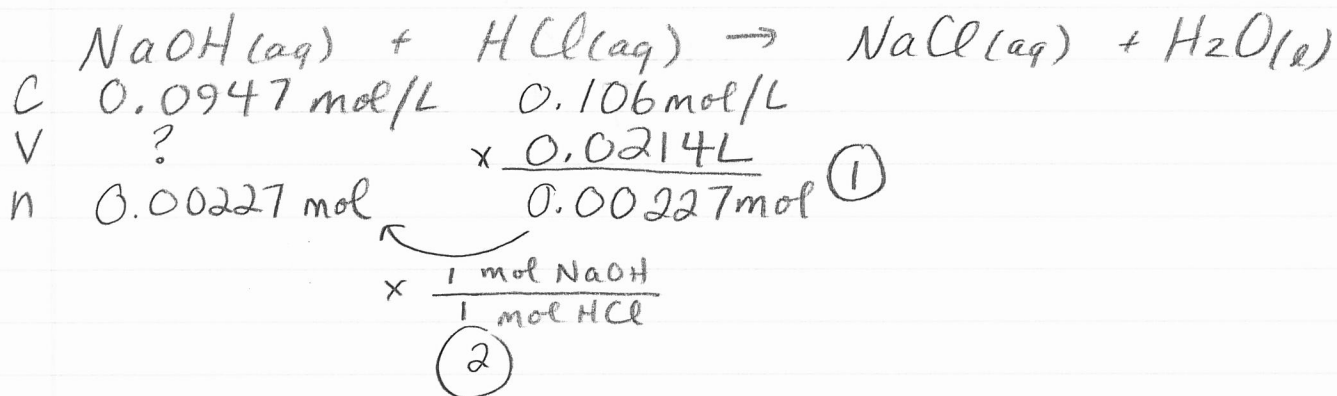 NaOH(aq) + HCl(aq) → NaCl(aq) + H2O(l)
C 0.0947 mol/L 0.106 mol/L
V ? x 0.0214L
n 0.00227 mol 0.00227 mol ①
x 1 mol NaOH
1 mol HCl
②